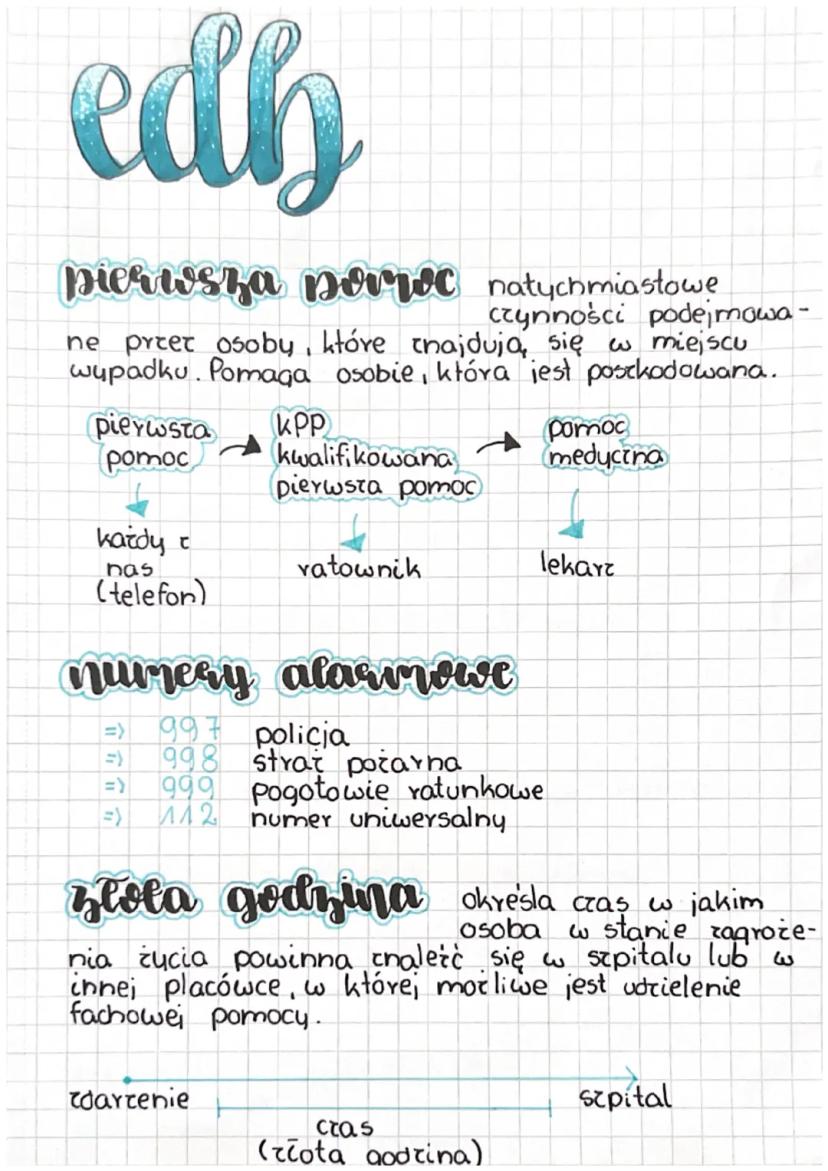 edb
pierwsza pomoc natychmiastowe
czynności podejmowa-
ne przez osoby, które znajdują się w miejscu
wypadku. Pomaga osobie, która jest poszkodowana.
pierwsza
pomoc
KPP
kwalifikowana
pierwsza pomoc
pomoc
medyczna
każdy z
nas
(telefon)
ratownik
lekarz
numery alarmowe
=> 997 policja
=> 998 straż pożarna
=> 999 pogotowie ratunkowe
=> 112 numer uniwersalny
złota godzina określa czas w jakim
osoba w stanie zagroże-
nia życia powinna znaleźć się w szpitalu lub w
innej placówce, w której możliwe jest udzielenie
fachowej pomocy.
zdarzenie
szpital
czas
(złota godzina)